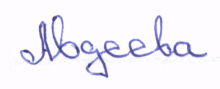 Авдеева